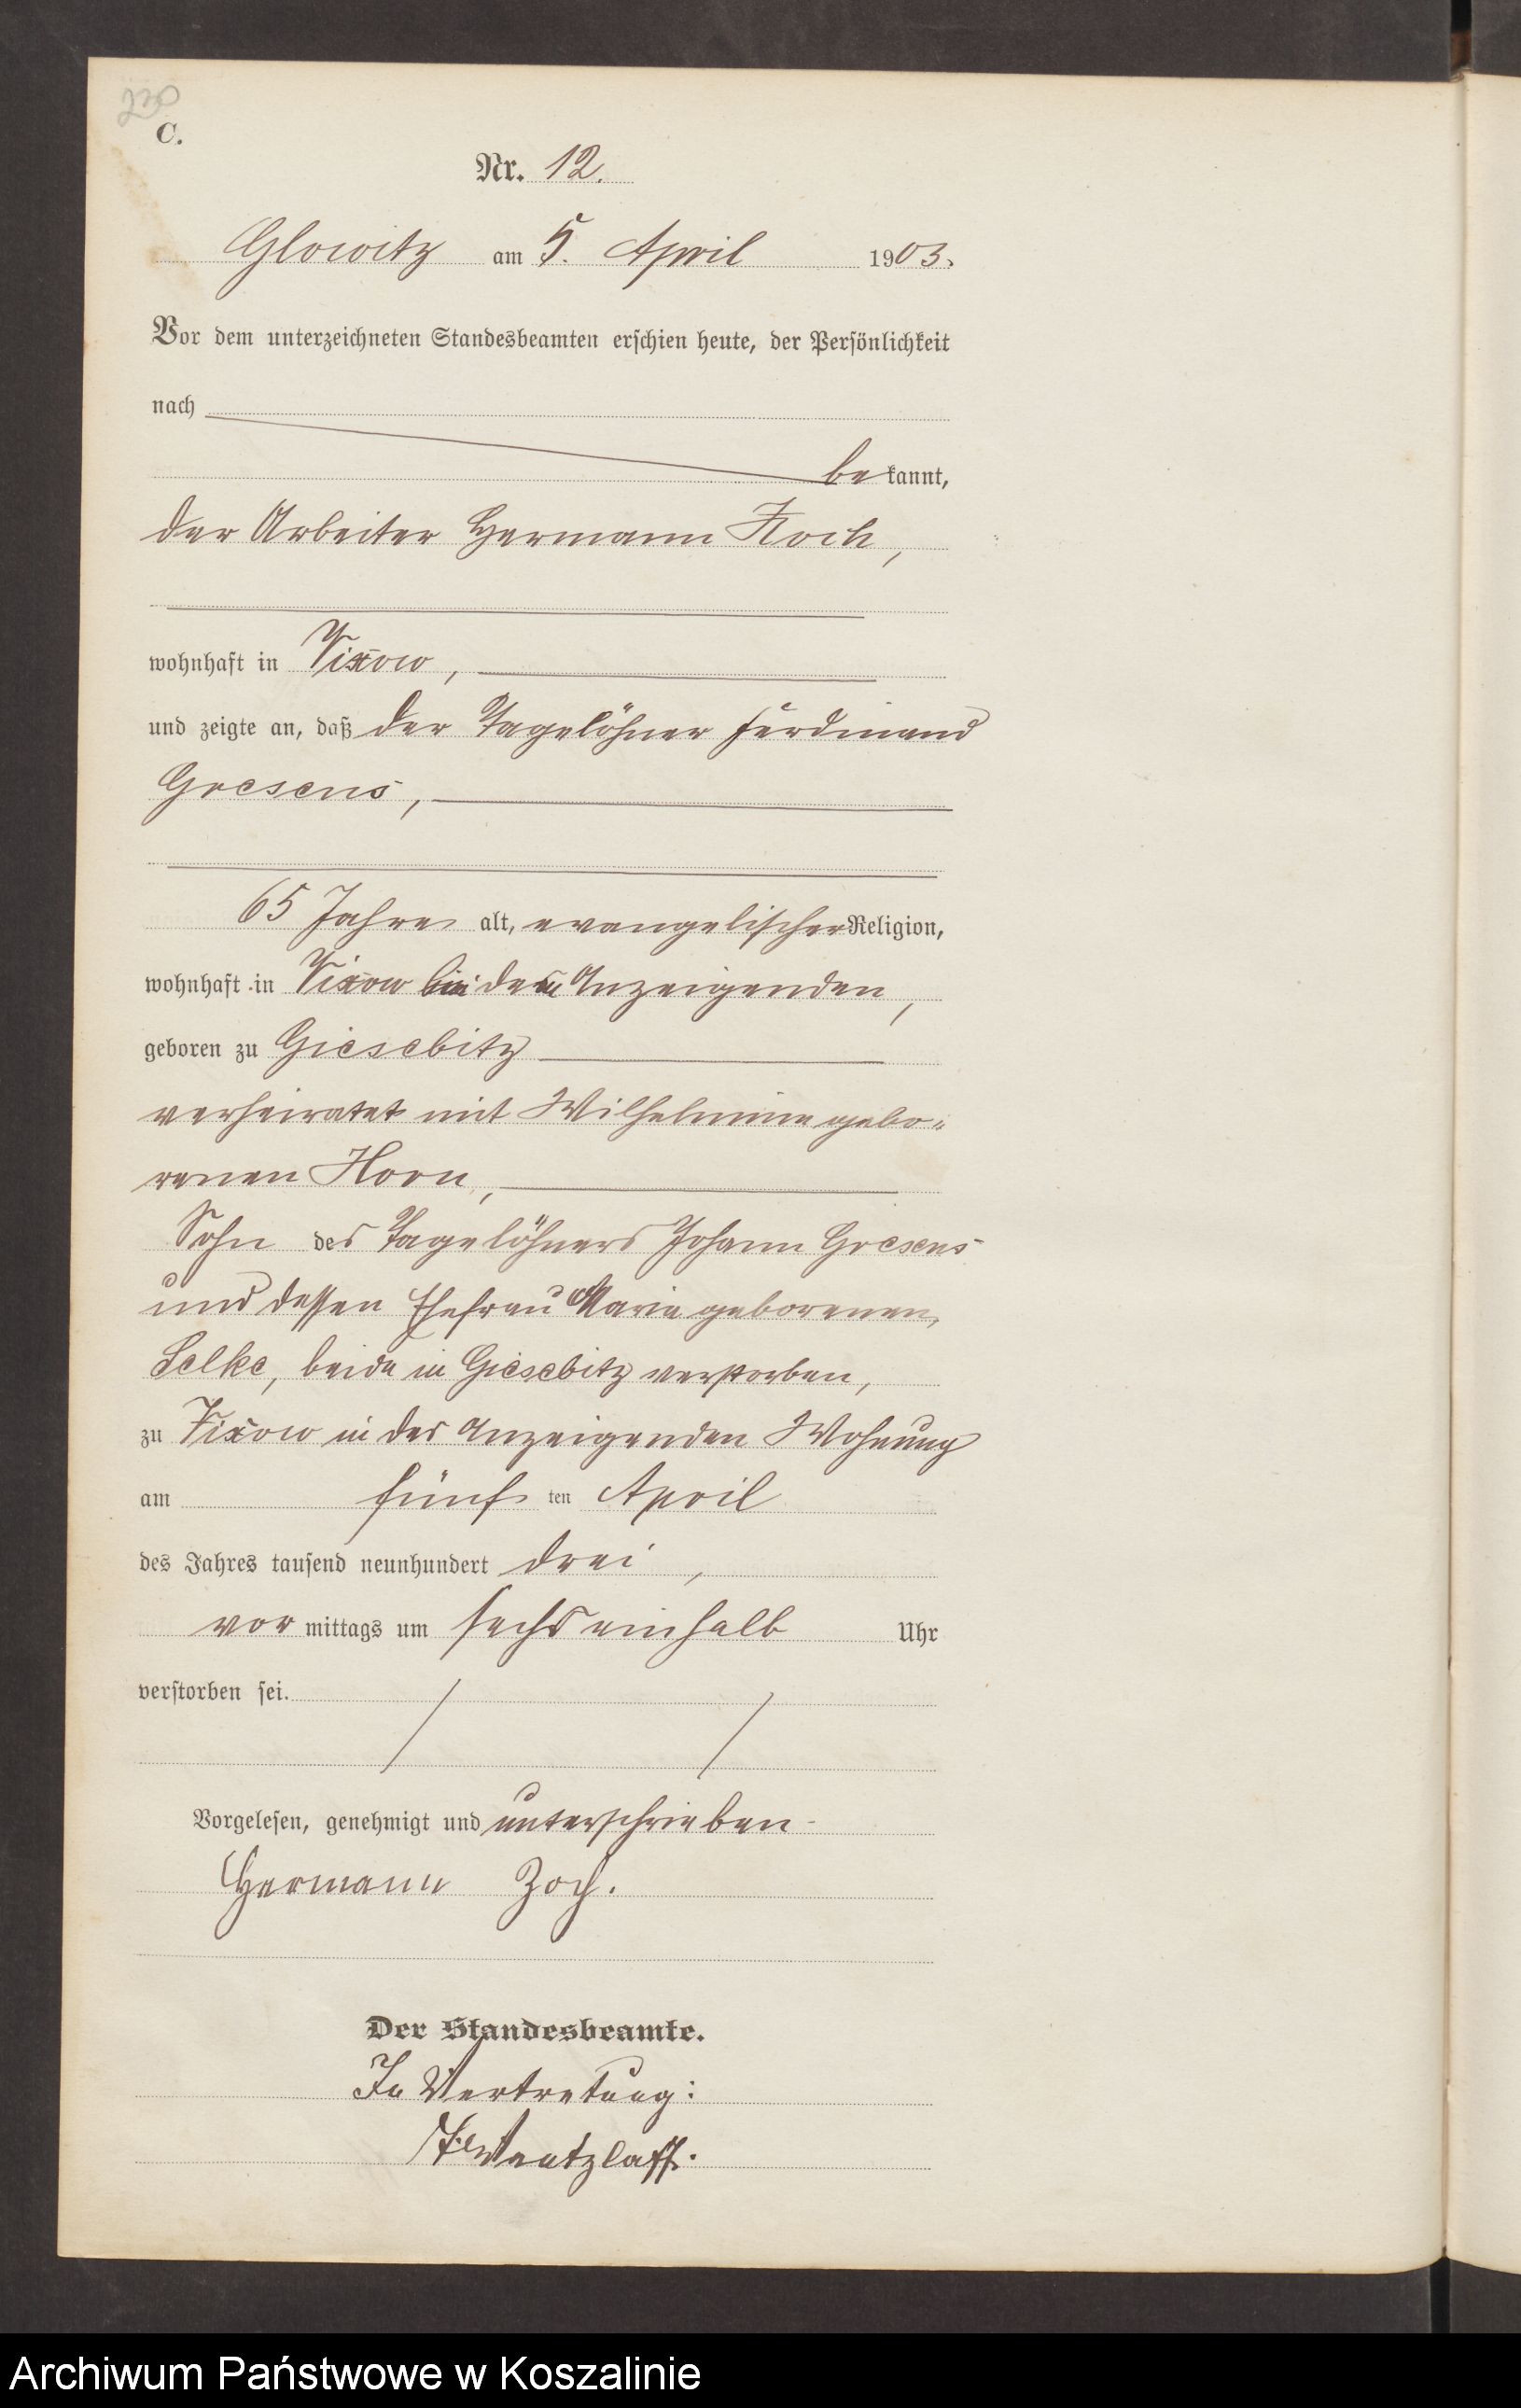 230
C.
Nr. 12.
Glowitz am 5. April 1903.
Vor dem unterzeichneten Standesbeamten erschien heute, der Persönlichkeit
nach
bekannt,
der Arbeiter Hermann
wohnhaft in Vixow,
und zeigte an, daß der Tagelöhner Ferdinand
Gresens,
65 Jahre alt, evangelischer Religion,
wohnhaft in Vixow bei dem Anzeigenden,
geboren zu Giesebitz
verheiratet mit Wilhelmine gebo-
renen Horn,
Sohn des Tagelöhners Johann Gresens
und dessen Ehefrau Maria geborenen,
Selke, beide in Giesebitz verstorben,
zu Vixow in des Anzeigenden Wohnung
am fünften April
des Jahres tausend neunhundert drei,
vormittags um sechs einhalb Uhr
verstorben sei.
Vorgelesen, genehmigt und unterschrieben
Hermann Zoch.
Der Standesbeamte.
In Vertretung:
Wentzlaff.
Archiwum Państwowe w Koszalinie